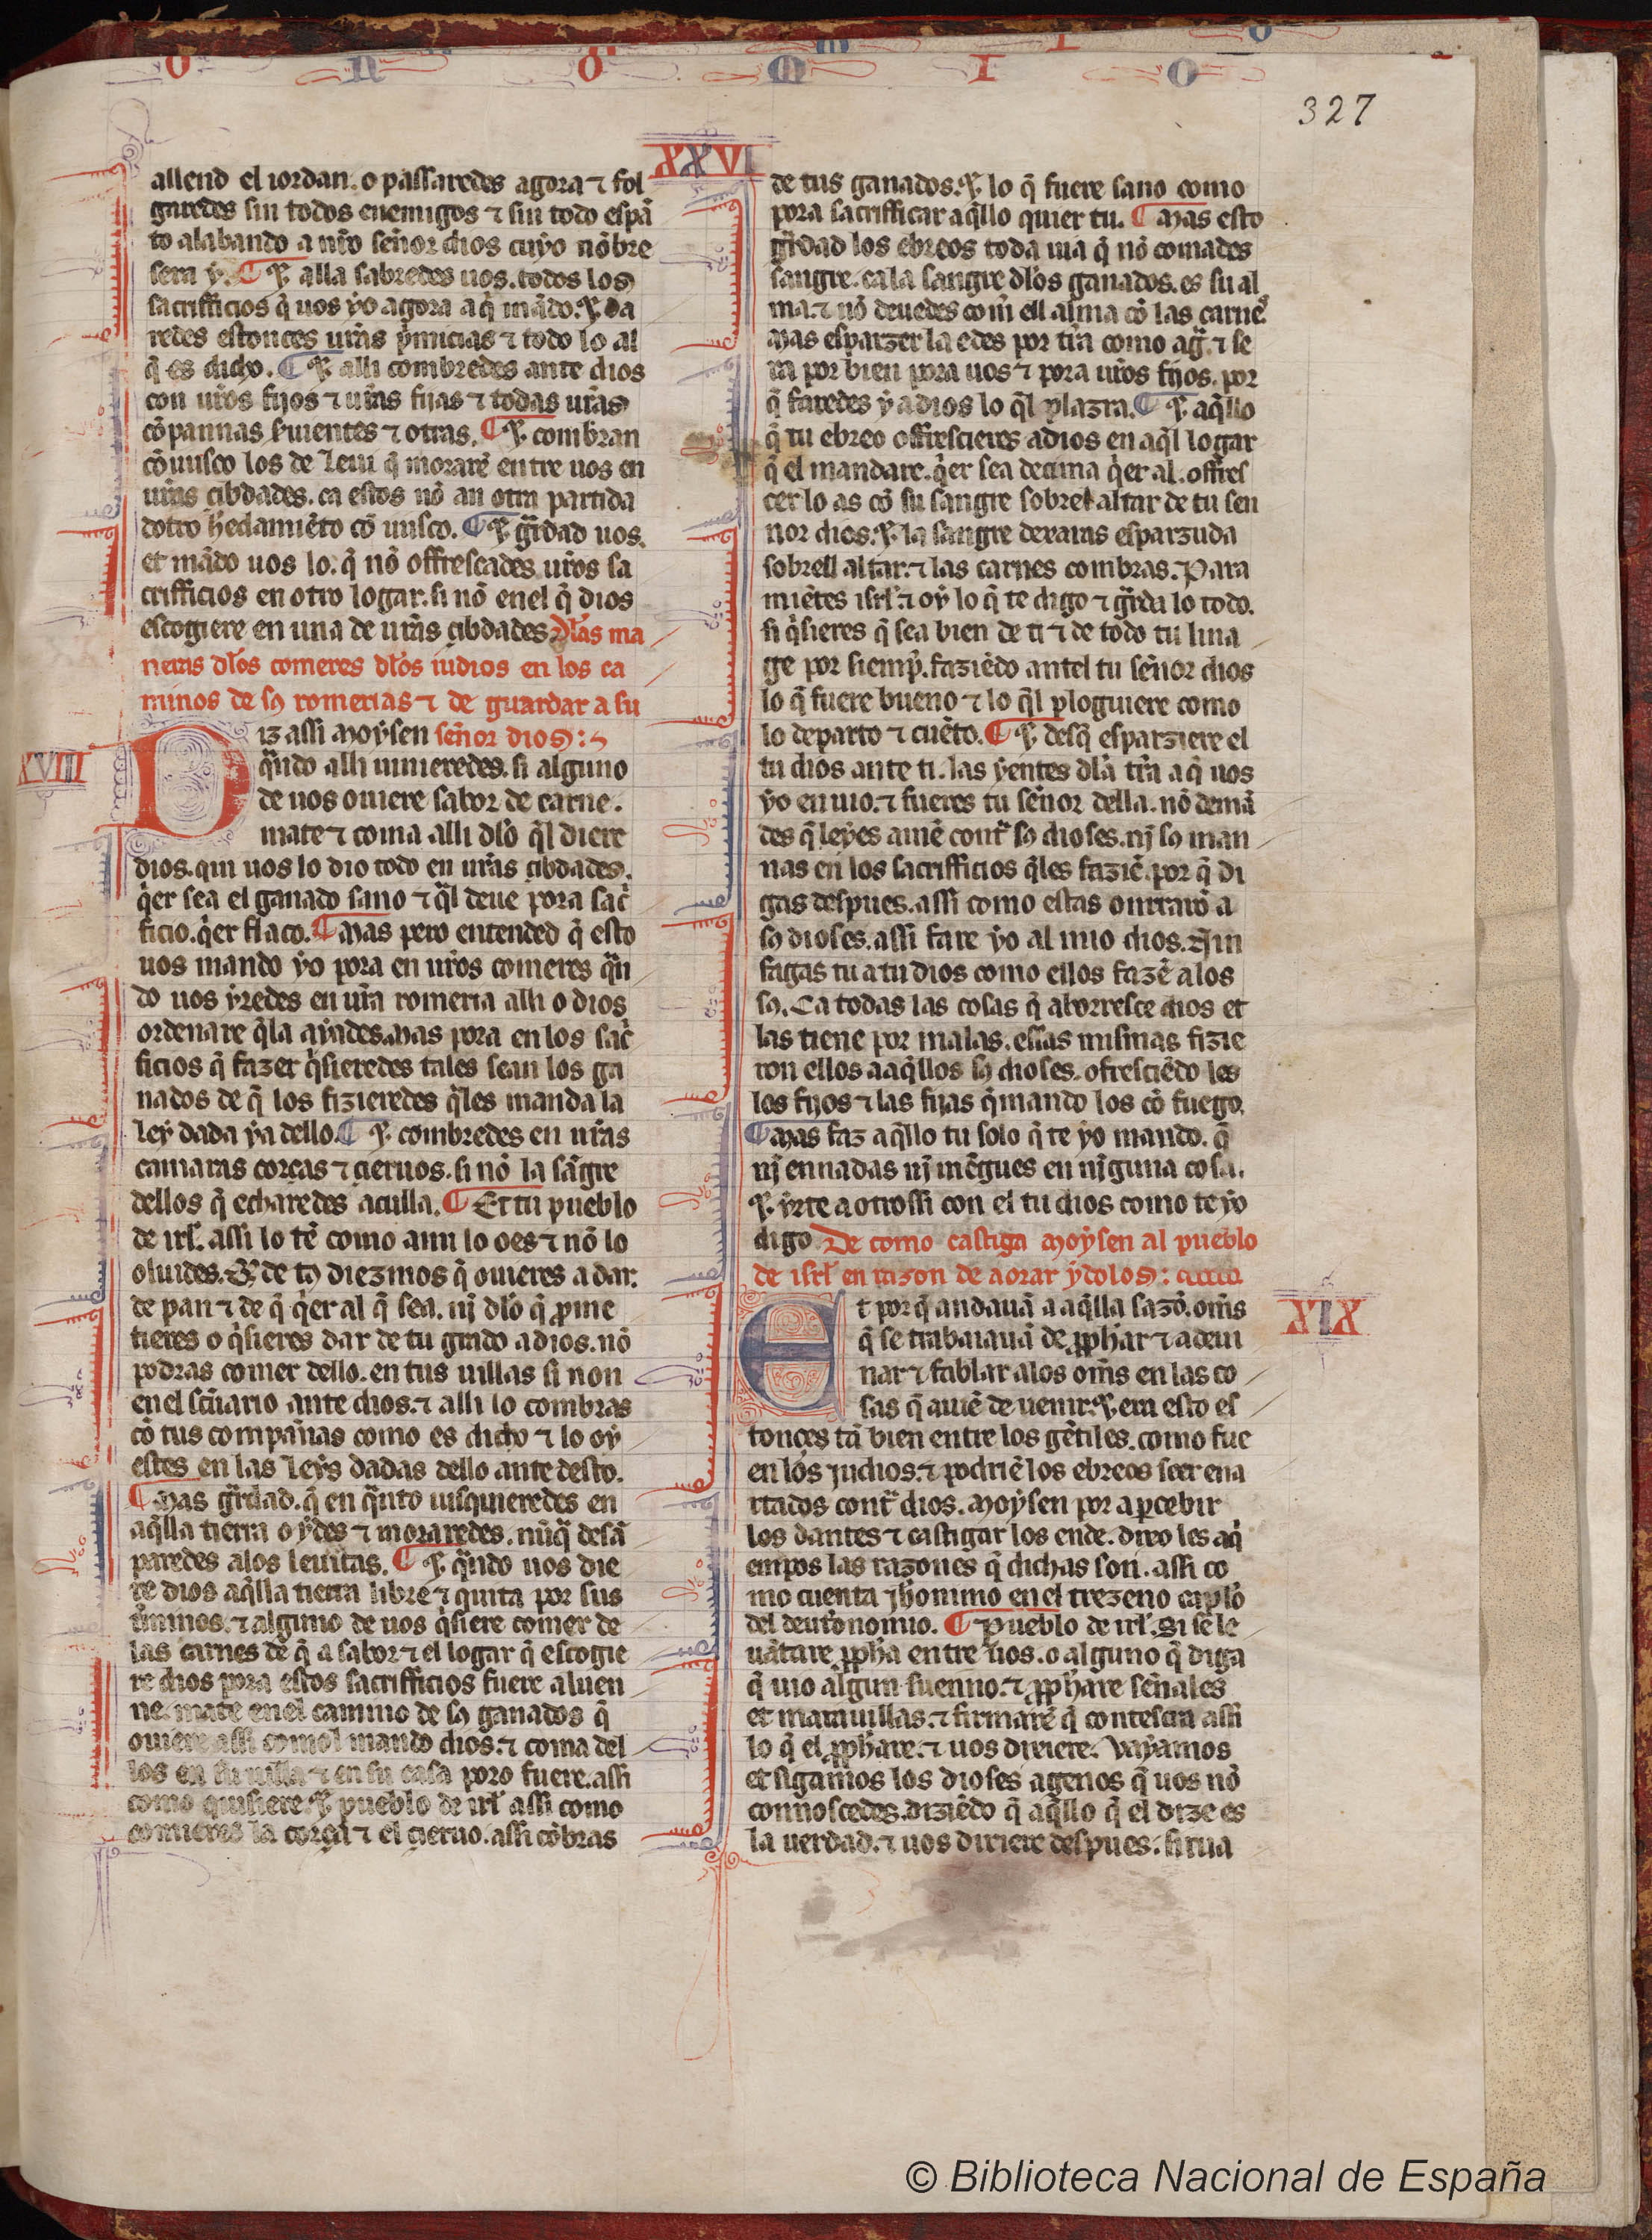 o n o m i o
327
XXVI
allend el iordan. o passaredes agora ⁊ fol
garedes sin todos enemigos ⁊ sin todo espã
to alabando a nr̃o señor dios cuyo nõbre
sera ẏ. ¶ ⁊ alla sabredes uos. todos los
sacrifficios q̃ uos ẏo agora aq̃ mãdo. ⁊ da
redes estonces ur̃as p̃micias ⁊ todo lo al
q̃ es dicho. ¶ ⁊ alli combredes ante dios
con ur̃os fijos ⁊ ur̃as fijas ⁊ todas ur̃as
cõpannas siruientes ⁊ otras. ¶ ⁊ combran
cõuusco los de Leui q̃ morarẽ entre uos en
ur̃as çibdades. ca estos nõ an otra partida
dotro h̃edamiẽto cõ uusco. ¶ ⁊ gr̃dad uos.
et mãdo uos lo. q̃ nõ offrescades ur̃os sa
crifficios en otro logar. si nõ enel q̃ dios
escogiere en una de ur̃as çibdades. dl̃as ma
neras dl̃os comeres dl̃os iudios en los ca
minos de sꝯ romerias ⁊ de guardar a su
XVIII
Diz assi moẏsen señor dios:
q̃ndo alli uinieredes. si alguno
de uos ouiere sabor de carne.
mate ⁊ coma alli dl̃o q̃l diere
dios. qui uos lo dio todo en ur̃as çibdades.
q̃er sea el ganado sano ⁊ q̃l deue pora sac̃
ficio. q̃er flaco. ¶ mas pero entended q̃ esto
uos mando ẏo pora en ur̃os comeres q̃n
do uos ẏredes en ur̃a romeria alli o dios
ordenare q̃la aẏades. mas pora en los sac̃
ficios q̃ fazer q̃sieredes tales sean los ga
nados de q̃ los fizieredes q̃les manda la
Leẏ dada ẏa dello. ¶ ⁊ combredes en ur̃as
camaras corças ⁊ çieruos. si nõ la sãgre
dellos q̃ echaredes aculla. ¶ Et tu pueblo
de irl̃. assi lo tẽ como aun lo oes ⁊ nõ lo
oluides. ⁊ de tꝯ diezmos q̃ ouieres a dar.
de pan ⁊ de q̃ q̃er al q̃ sea. nĩ dl̃o q̃ p̃me
tieres o q̃sieres dar de tu grado a dios. nõ
podras comer dello. en tus uillas si non
enel sc̃uario ante dios. ⁊ alli lo combras
cõ tus compañas como es dicho ⁊ lo oẏ
estes en las Leẏs dadas dello ante desto.
¶ Mas gr̃dad. q̃ en q̃nto uisquieredes en
aq̃lla tierra o ẏdes ⁊ moraredes. nũq̃ desã
paredes alos leuitas. ¶ ⁊ q̃ndo uos die
re dios aq̃lla tierra libre ⁊ quita por sus
t̃minos. ⁊ alguno de uos q̃siere comer de
las carnes de q̃ a sabor ⁊ el logar q̃ escogie
re dios pora estos sacrifficios fuere aluen
ne. mate enel camino de sꝯ ganados q̃
ouiere assi comol mando dios. ⁊ coma del
los en su uilla ⁊ en su casa poro fuere. assi
como quisiere. ⁊ pueblo de irl̃ assi como
comieres la corça ⁊ el çieruo. assi cõbras
de tus ganados. ⁊ lo q̃ fuere sano como
pora sacrifficar aq̃llo quier tu. ¶ Mas esto
gr̃dad los ebreos toda uia q̃ nõ comades
sangre. ca la sangre dl̃os ganados. es su al
ma. ⁊ nõ deuedes com̃ ell alma cõ las carnes.
Mas esparzer la edes por tr̃a como ag̃. ⁊ se
ra por bien pora uos ⁊ pora ur̃os fijos. por
q̃ faredes ẏ a dios lo q̃l plazra. ¶ ⁊ aq̃llo
q̃ tu ebreo offrescieres a dios en aq̃l logar
q̃ el mandare. q̃er sea decima q̃er al. offres
cer lo as cõ su sangre sobrel altar de tu sen
nor dios. ⁊ la sangre dexaras esparzuda
sobrell altar. ⁊ las carnes combras. Para
miẽtes isrl̃. ⁊ oẏ lo q̃ te digo ⁊ gr̃da lo todo.
si q̃sieres q̃ sea bien de ti ⁊ de todo tu lina
ge por siemp̃. faziẽdo antel tu señor dios
lo q̃ fuere bueno ⁊ lo q̃l ploguiere como
lo departo ⁊ cuẽto. ¶ ⁊ desq̃ esparziere el
tu dios ante ti. las ẏentes dl̃a tr̃a a q̃ uos
ẏo enuio. ⁊ fueres tu señor della. nõ demã
des q̃ leẏes auiẽ contr̃ sꝯ dioses. nĩ sꝯ man
nas en los sacrifficios q̃les faziẽ. por q̃ di
gas despues. assi como estas onrrarõ a
sꝯ dioses. assi fare ẏo al mio dios. Nin
fagas tu a tu dios como ellos fazẽ alos
sꝯ. Ca todas las cosas q̃ aborresce dios et
las tiene por malas. essas mismas fizie
ron ellos a aq̃llos sꝯ dioses. ofresciẽdo les
los fijos ⁊ las fijas q̃mando los cõ fuego.
¶ Mas faz aq̃llo tu solo q̃ te ẏo mando. q̃
nĩ ennadas nĩ mẽgues en nĩguna cosa.
⁊ ẏrte a otrossi con el tu dios como te ẏo
digo. De como castiga moẏsen al pueblo
de isrl̃ en razon de aorar ẏdolos:
XIX
Et porq̃ andauã a aq̃lla sazõ. om̃s
q̃ se trabaiauã de ꝓph̃ar ⁊ adeui
nar ⁊ fablar alos om̃s en las co
sas q̃ auiẽ de uenir. ⁊ era esto es
tonces tã bien entre los gẽtiles. como fue
en los judios. ⁊ podriẽ los ebreos seer ena
rtados contr̃ dios. Moẏsen por aꝑcebir
los dantes ⁊ castigar los ende. dixo les aq̃
empos las razones q̃ dichas son. assi co
mo cuenta jheronimo en el trezeno capl̃o
del deut̃onomio. ¶ Pueblo de irl̃. Si se le
uãtare ꝓph̃a entre uos. o alguno q̃ diga
q̃ uio algun suenno. ⁊ ꝓph̃are señales
et marauillas. ⁊ firmarẽ q̃ contescra assi
lo q̃ el ꝓph̃are. ⁊ uos dixiere. Vaẏamos
et sigamos los dioses agenos q̃ uos nõ
connoscedes. diziẽdo q̃ aq̃llo q̃ el dize es
la uerdad. ⁊ uos dixiere despues. sirua
© Biblioteca Nacional de España